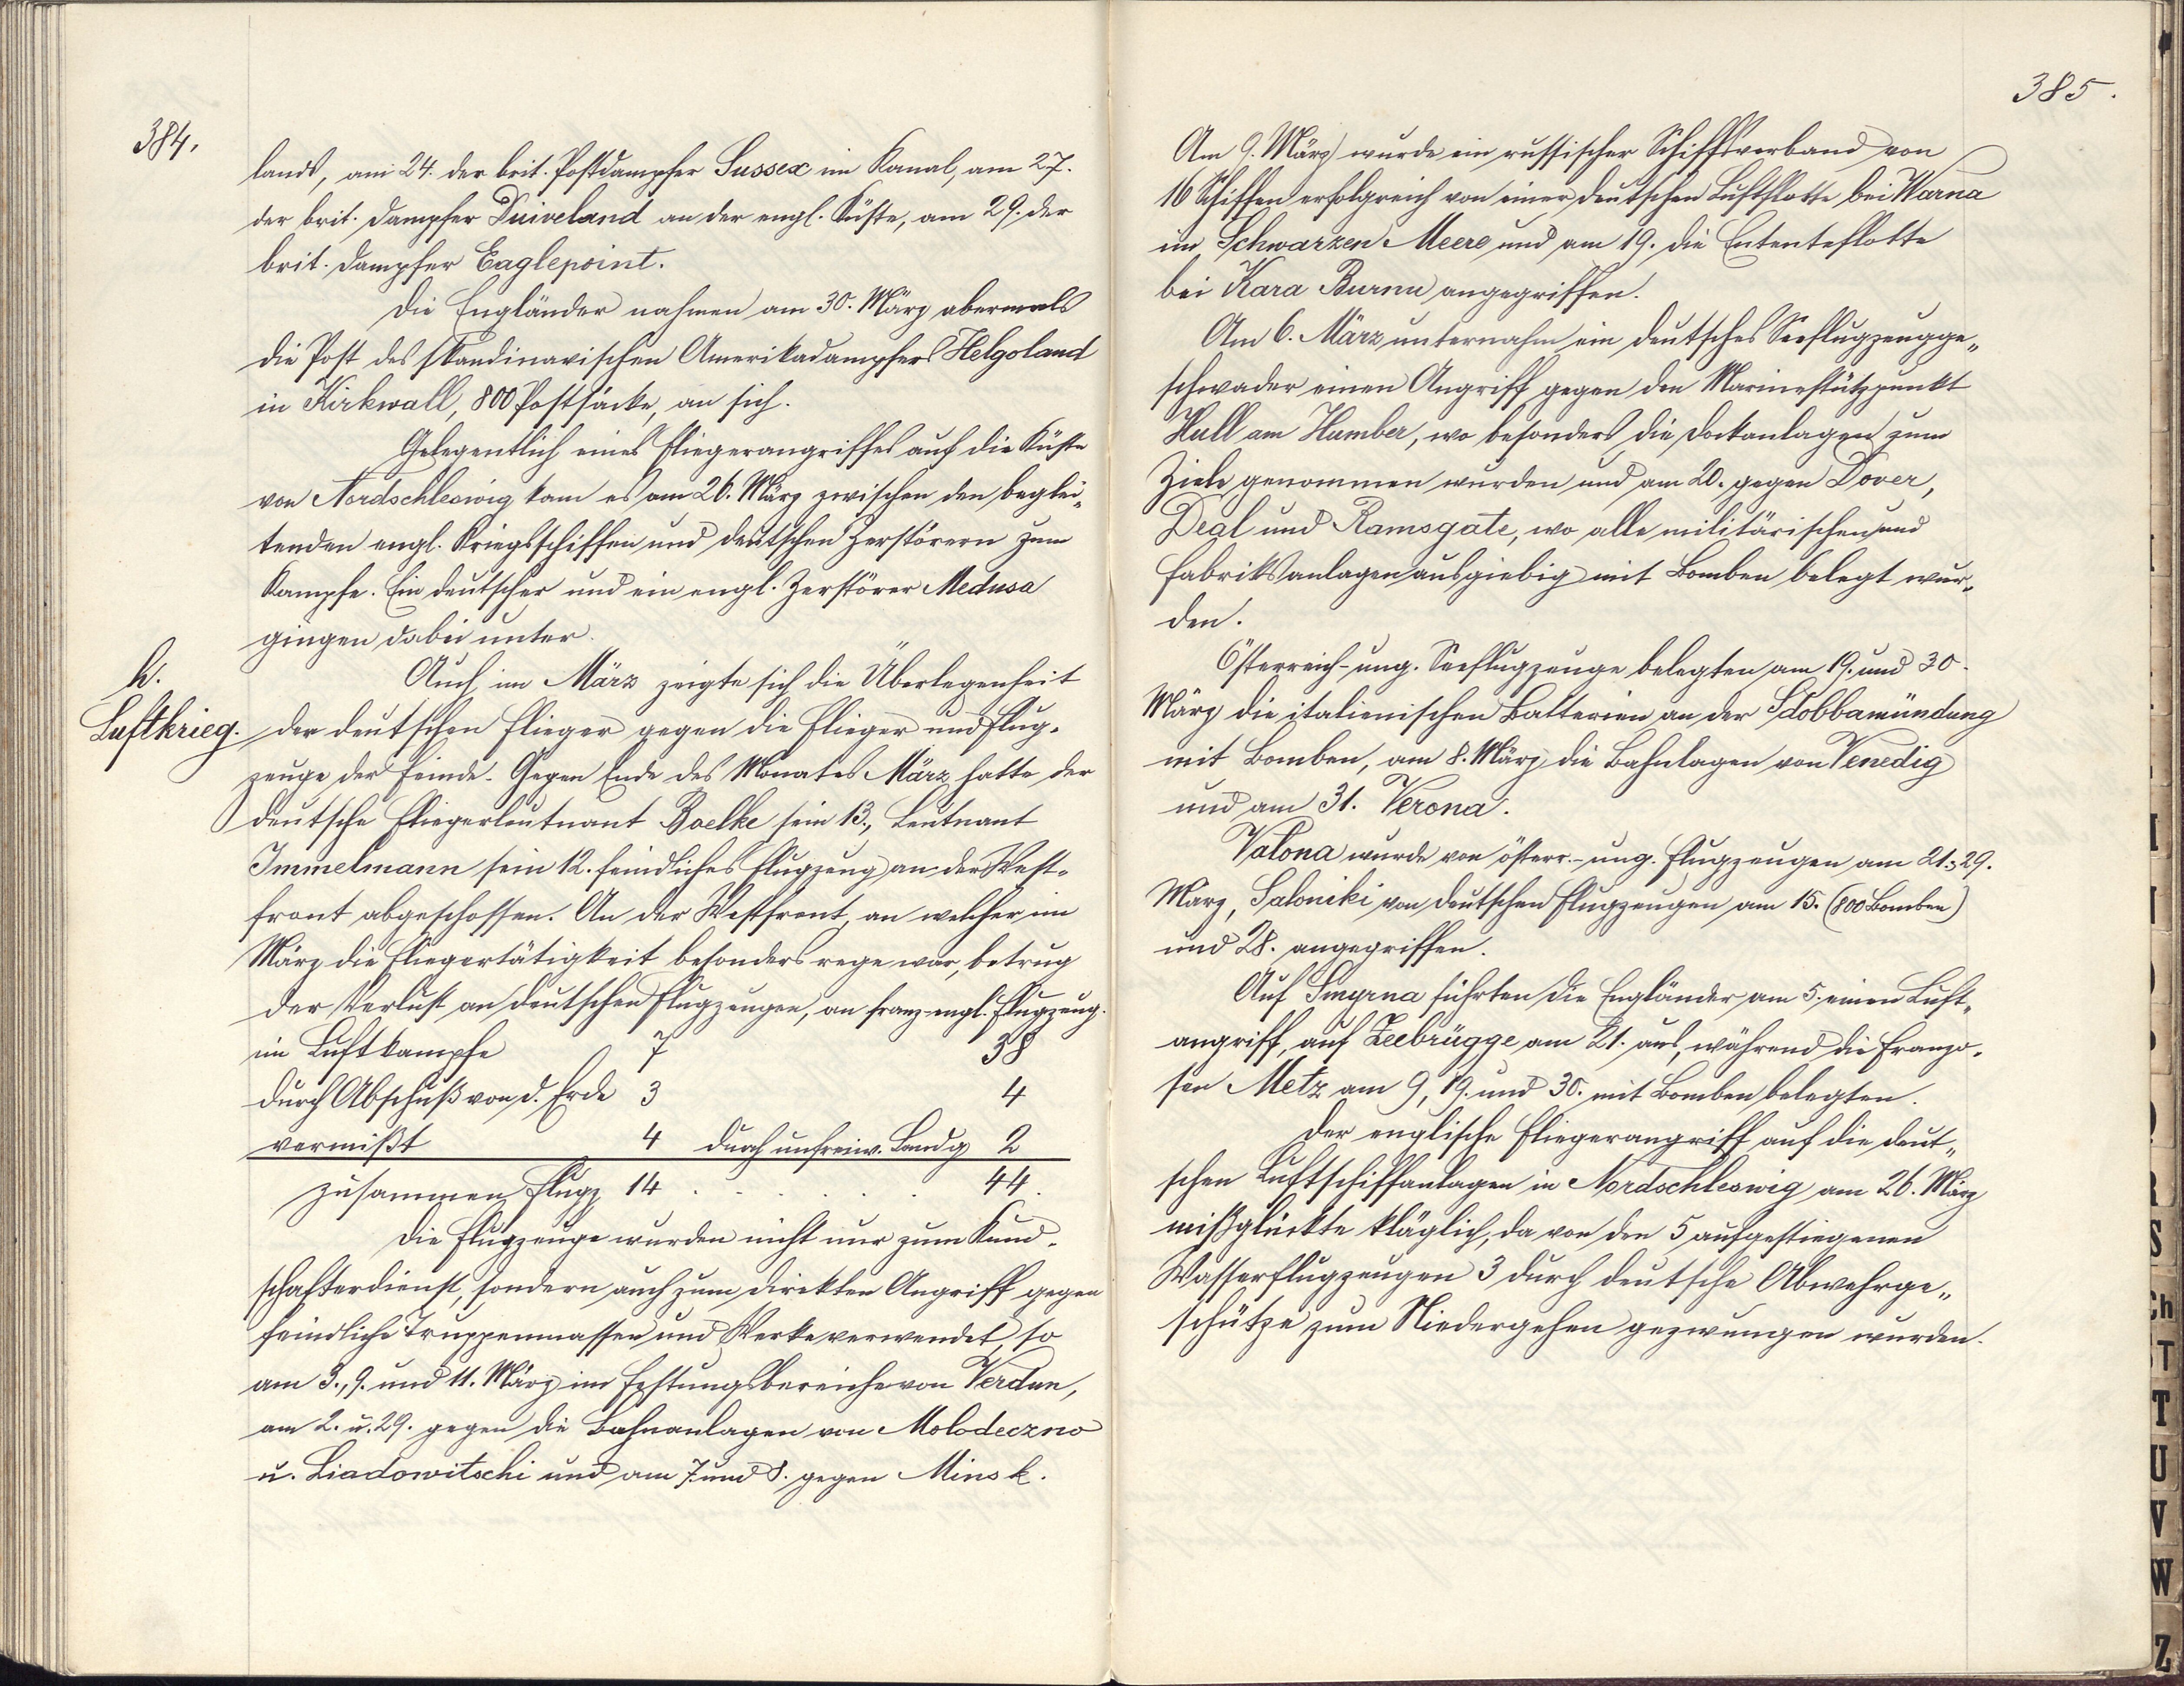 384.
lands, am 24. der brit. Postdampfer Sussex im Kanal, am 27.
der brit. Dampfer Duiveland an der engl. Küste, am 29. der
brit. Dampfer Eaglepoint.
Die Engländer nahmen am 30. März abermals
die Post des skandinavischen Amerikadampfers Helgoland
in Kirkwall, 800 Postsäcke, an sich.
Gelegentlich eines Fliegerangriffes auf die Küste
von Nordschleswig kam es am 26. März zwischen den beglei„
tenden engl. Kriegsschiffen und deutschen Zerstörern zum
Kampfe. Ein deutscher und ein engl. Zerstörer Medusa
gingen dabei unter.
h.
Luftkrieg.
Auch im März zeigte sich die Überlegenheit
der deutschen Flieger gegen die Flieger und Flug-
zeuge der Feinde. Gegen Ende des Monates März hatte der
deutsche Fliegerleutnant Boelke sein 13., Leutnant
Immelmann sein 12. feindliches Flugzeug an der West-
front abgeschossen. An der Westfront, an welcher im
März die Fliegertätigkeit besonders rege war, betrug
der Verlust an deutschen Flugzeugen, an franz-engl. Flugzeug.
im Luftkampfe 7 38
durch Abschuß von d. Erde 3 4
vermißt 4 durch unfreiw. Landg 2
zusammen Flugz 14 . . . . . . 44.
Die Flugzeuge wurden nicht nur zum Kund-
schafterdienst, sondern auch zum direkten Angriff gegen
feindliche Truppenmassen und Werke verwendet, so
am 3., 9. und 11. März im Festungsbereiche von Verdun,
am 2. u. 29. gegen die Bahnanlagen von Molodeczno
u. Liadowitschi und am 7. und 8. gegen Minsk.
385.
Am 9. März wurde ein russischer Schiffsverband von
16 Schiffen erfolgreich von einer deutschen Luftflotte bei Warna
im Schwarzen Meere und am 19. die Ententeflotte
bei Kara Burnu angegriffen.
Am 6. März unternahm ein deutsches Seeflugzeugge„
schwader einen Angriff gegen den Marinestützpunkt
Hull am Humber, wo besonders die Dockanlagen zum
Ziele genommen wurden und am 20. gegen Dover,
Deal und Ramsgate, wo alle militärischen und
Fabriksanlagen ausgiebig mit Bomben belegt wur„
den.
Österreich-ung. Seeflugzeuge belegten am 19. und 30.
März die italienischen Batterien an der Sdobbamündung
mit Bomben, am 8. März die Bahnlagen von Venedig
und am 31. Verona.
Valona wurde von österr.-ung. Flugzeugen am 21., 29.
März, Saloniki von deutschen Flugzeugen am 15. (800 Bomben)
und 28. angegriffen.
Auf Smyrna führten die Engländer am 5. einen Luft„
angriff, auf Zeebrügge am 21. aus, während die Franzo-
sen Metz am 9, 19. und 30. mit Bomben belegten.
Der englische Fliegerangriff auf die deut„
schen Luftschiffanlagen in Nordschleswig am 26. März
mißglückte kläglich, da von den 5 aufgestiegenen
Wasserflugzeugen 3 durch deutsche Abwehrge„
schütze zum Niedergehen gezwungen wurden.
R
S
Ch
T
T
U
V
W
Z